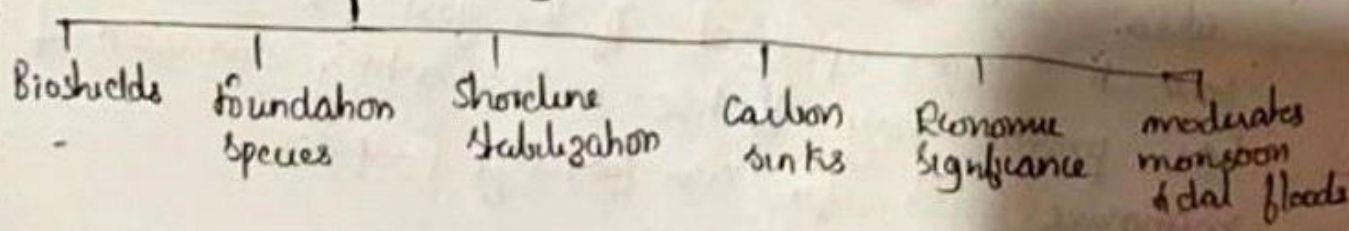 Bioshields
foundation
species
Shoreline
stabilization
Carbon
sinks
Economic
significance
moderates
monsoon
tidal floods